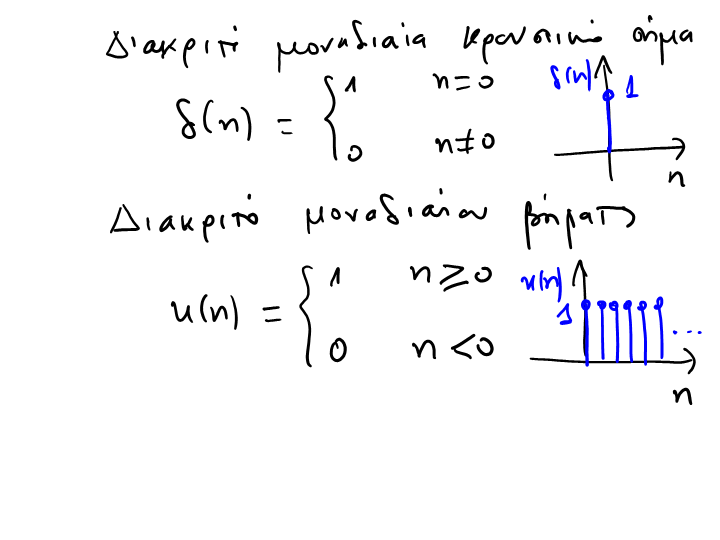 Διακριτό μοναδιαία κρουστικό σήμα
δ(n) = { 1 n=0
0 n≠0
δ(n) 1
n
Διακριτό μοναδιαίου βήματος
u(n) = { 1 n≥0
0 n<0
u(n)
1 ...
n